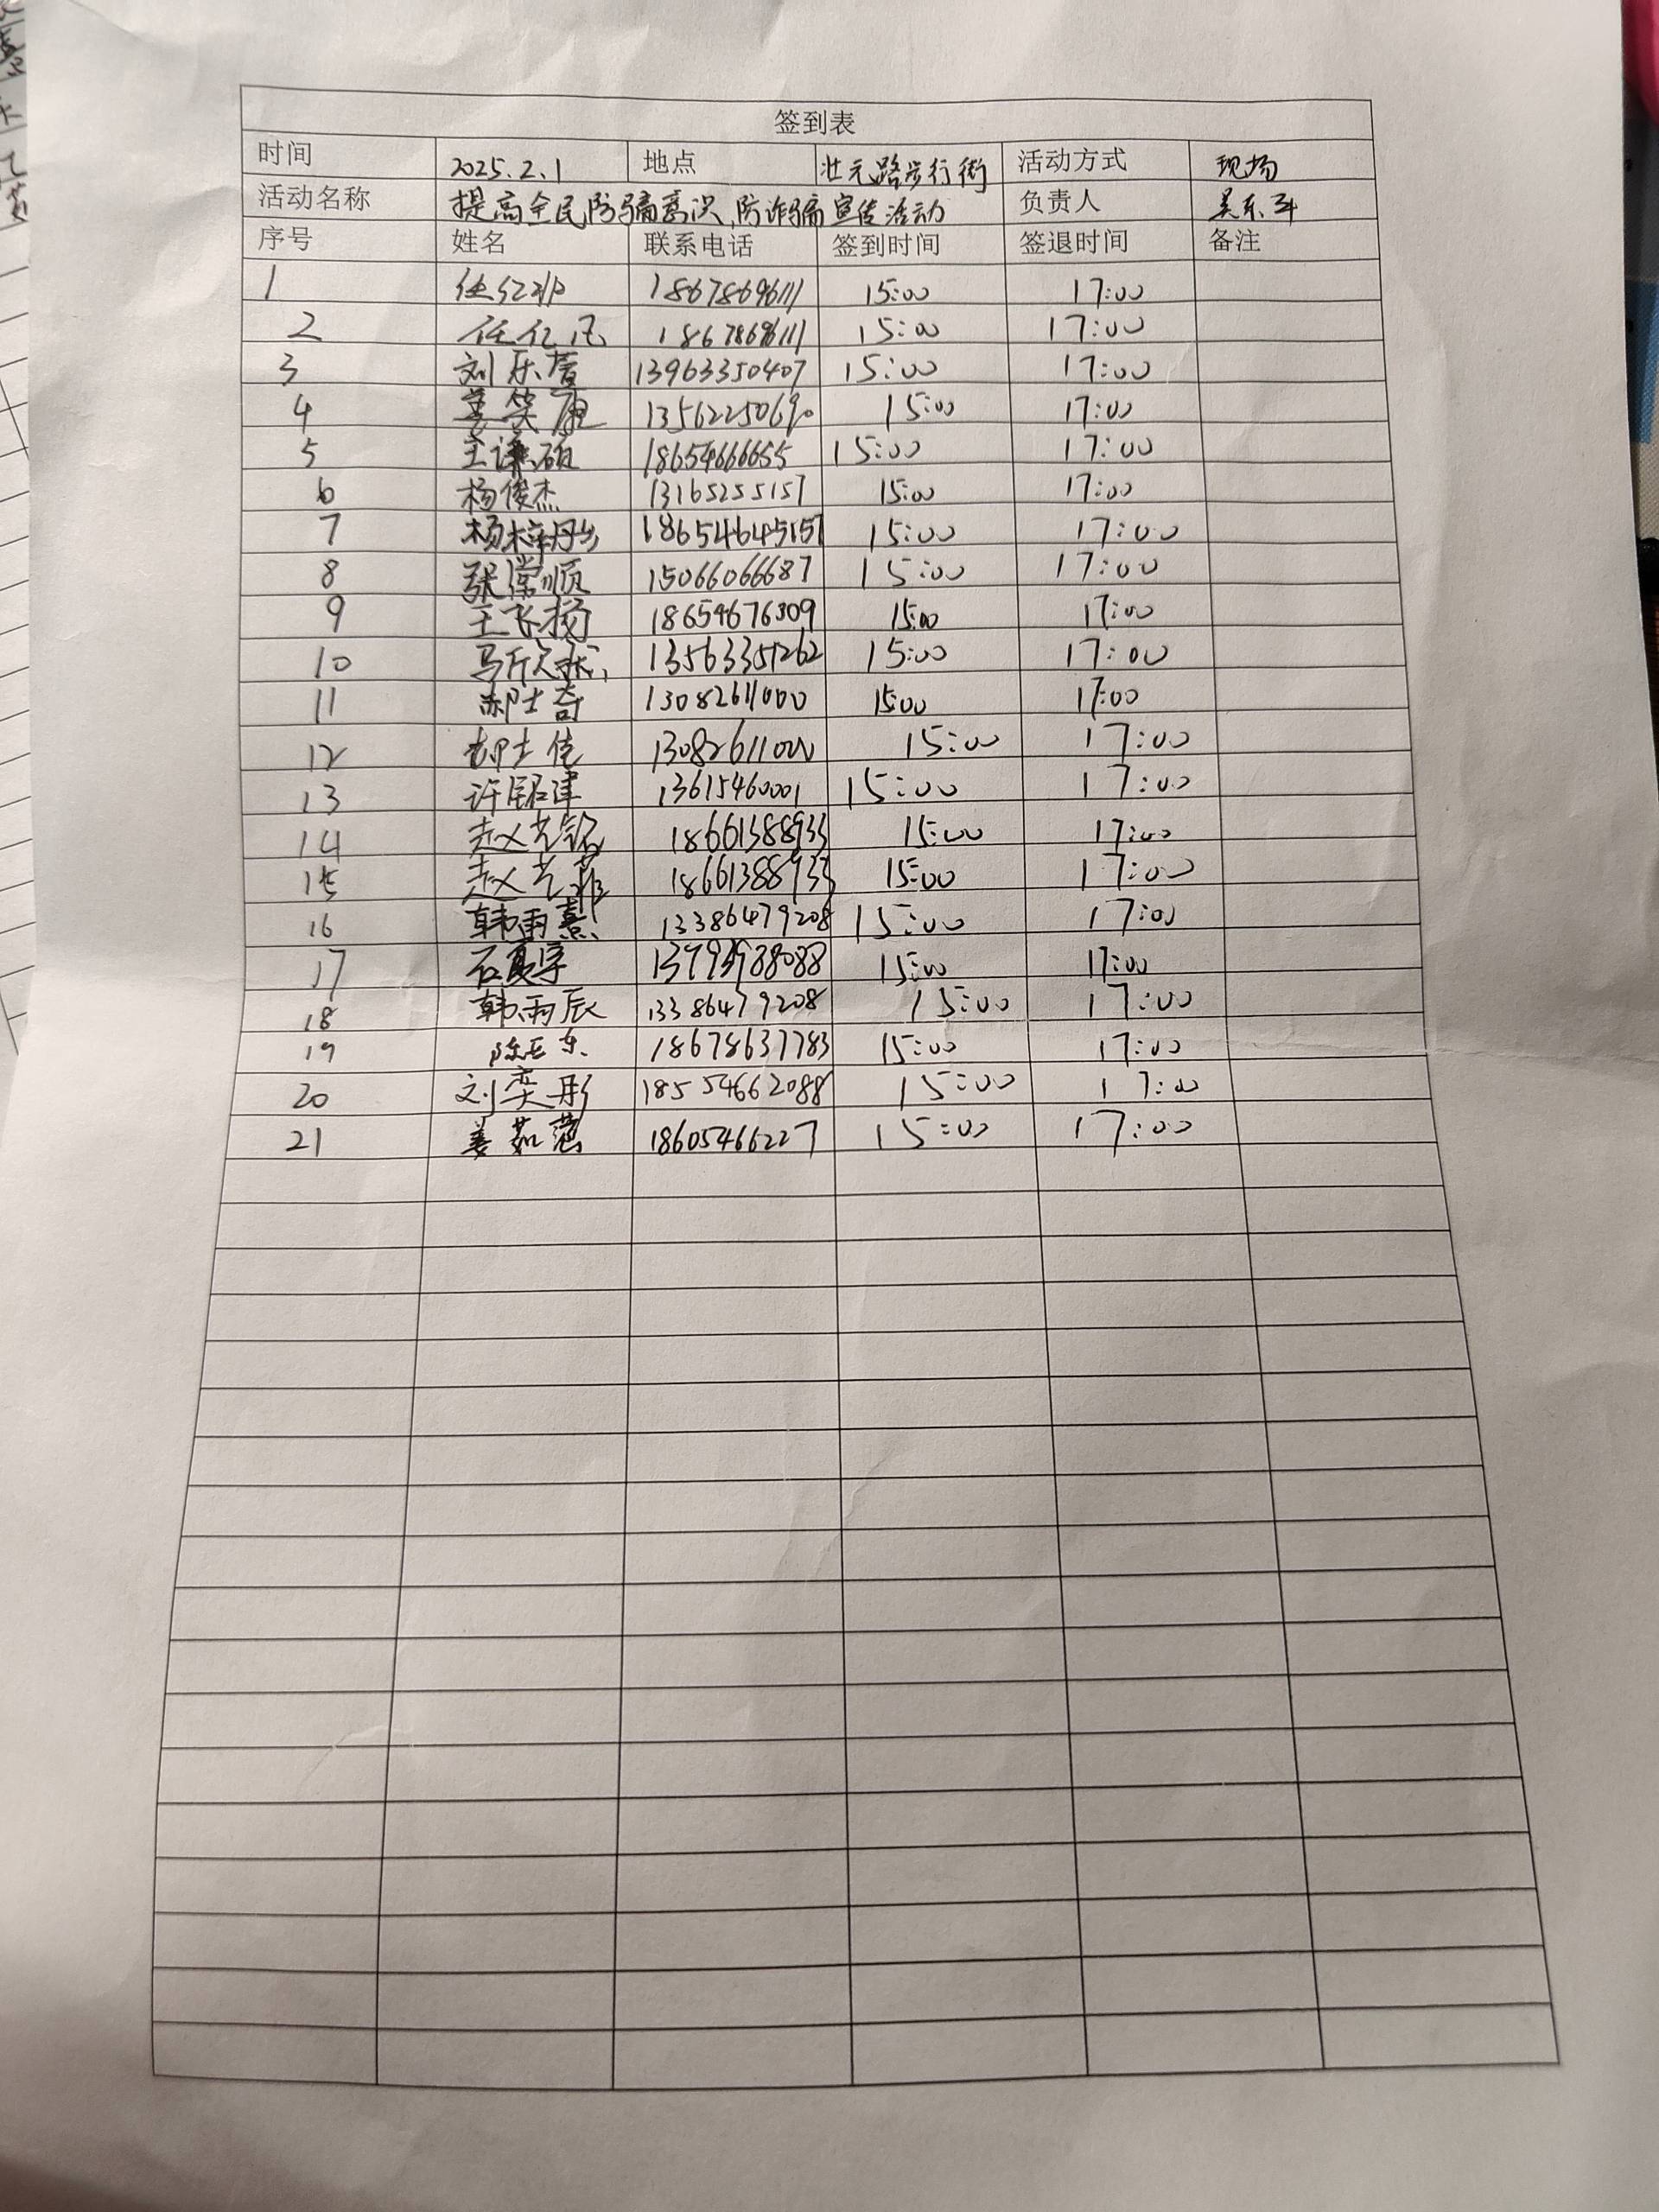 签到表
时间 2025.2.1 地点 壮元路步行街 活动方式 现场
活动名称 提高全民防骗意识,防诈骗宣传活动 负责人
序号 姓名 联系电话 签到时间 签退时间 备注
1 18678696111 15:00 17:00
2 任亿凡 18678696111 15:00 17:00
3 刘乐 13963350407 15:00 17:00
4 姜笑 13562250690 15:00 17:00
5 硕 18654666655 15:00 17:00
6 杨俊杰 13165255157 15:00 17:00
7 杨梓丹 18654645157 15:00 17:00
8 张 顺 15066066687 15:00 17:00
9 王飞扬 18654676309 15:00 17:00
10 马 13563351262 15:00 17:00
11 郝士奇 13082611000 15:00 17:00
12 郝士佳 13082611000 15:00 17:00
13 许 津 13615460001 15:00 17:00
14 赵艺铭 18661388933 15:00 17:00
15 赵艺菲 18661388933 15:00 17:00
16 韩雨熹 13386479208 15:00 17:00
17 石夏宇 15:00 17:00
18 韩雨辰 13386479208 15:00 17:00
19 陈 东 18678637783 15:00 17:00
20 刘奕彤 18554662088 15:00 17:00
21 姜茹 18605466227 15:00 17:00